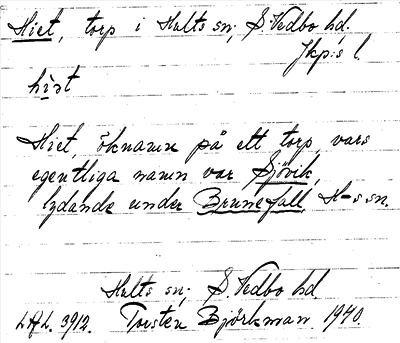 Hiet, torp i Hults sn; S. Vedbo hd.
Jkp:s l.
Hiet, öknamn på ett torp, vars
egentliga namn var Sjövik,
lydande under Brunefall, H-s sn.
Hults sn; S. Vedbo hd.
LAL. 3912. Torsten Björkman 1940.